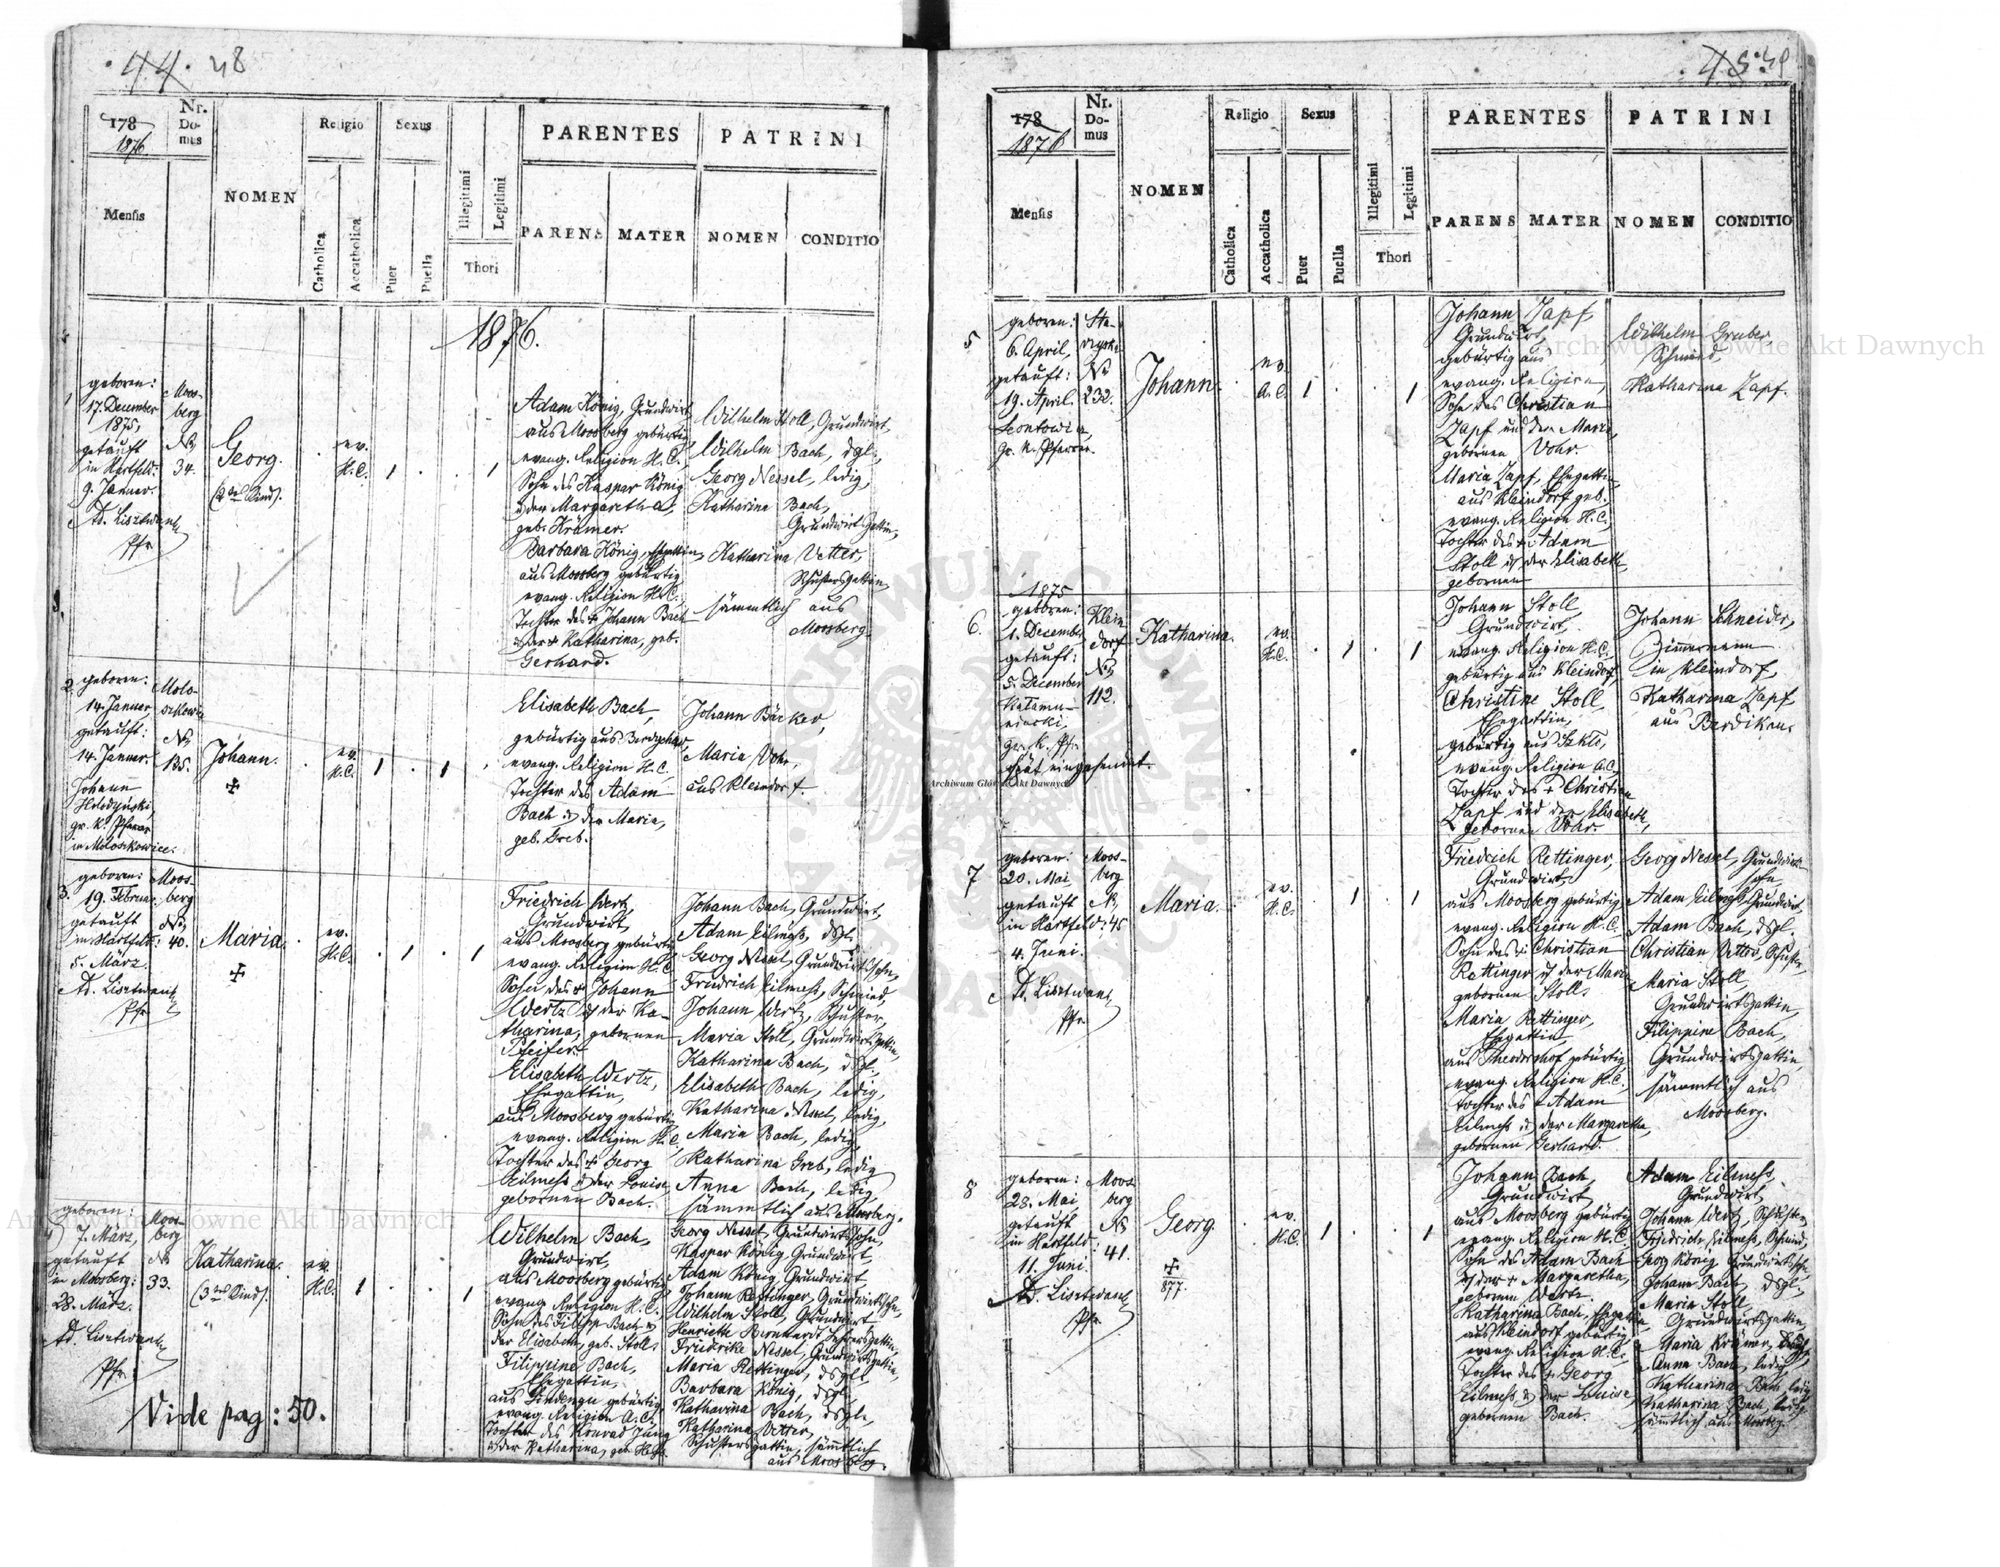 44. 48
178
1876
Nr.
Do-
mus
Religio
Sexus
PARENTES
PATRINI
Mensis
NOMEN
Catholica
Accatholica
Puer
Puella
Illegitimi
Legitimi
Thori
PARENS
MATER
NOMEN
CONDITIO
1876.
1
geboren:
17. December
1875,
getauft
in Hartfeld:
9. Janner.
Ad. Lisztwan
Pfr
Moos-
berg
No
34.
Georg.
(2tes Kind).
ev.
H.C.
1
1
Adam König, Grundwirt,
aus Moosberg gebürtig
evang. Religion H.C.,
Sohn des Kaspar König
u der Margaretha,
geb. Krämer.
Barbara König, Ehegattin,
aus Moosberg gebürtig
evang. Religion H.C.
Tochter des + Johann Bach
u der + Katharina, geb.
Gerhard.
Wilhelm Stoll, Grundwirt,
Wilhelm Bach, dgl.,
Georg Nessel, ledig,
Katharina Bach,
Grundwirt Gattin,
Katharina Vetter,
Schustersgattin,
sämmtlich aus
Moosberg.
2.
geboren:
14. Janner,
getauft:
14. Janner.
Johann
gr. k. Pfarrer
in Moloskowice.
No
135.
Johann.
ev.
H.C.
1
1
Elisabeth Bach,
gebürtig aus
evang. Religion H.C.
Tochter des Adam
Bach u der Maria,
geb. Greb.
Johann Bäcker,
Maria Vohr,
aus Kleindorf.
3.
geboren:
19. Februar,
getauft
in Hartfeld:
5. März.
Ad. Lisztwan
Pfr
Moos-
berg
No
40.
Maria.
ev.
H.C.
1
1
Friedrich Wertz,
Grundwirt,
aus Moosberg gebürtig
evang. Religion H.C.
Sohn des + Johann
Wertz u der Ka-
tharina, gebornen
Pfeifer.
Elisabeth Wertz,
Ehegattin,
aus Moosberg gebürtig
evang. Religion H.C.
Tochter des + Georg
Eilmess u der Louise,
gebornen Bach.
Johann Bach, Grundwirt,
Adam Eilmess, dsgl.
Georg Nessel, Grundwirtssohn,
Friedrich Eilmess, Schmied,
Johann Wertz, Schuster,
Maria Stoll, Grundwirtsgattin,
Katharina Bach, dsgl.,
Elisabeth Bach, ledig,
Katharina Nessel, ledig,
Maria Bach, ledig,
Katharina Greb, ledig
Anna Bach, ledig,
sämmtlich aus Moosberg.
4
geboren:
7. März,
getauft
in Moosberg:
28. März.
Ad. Lisztwan
Pfr
Moos-
berg
No
33.
Katharina.
(3tes Kind).
ev.
H.C.
1
1
Wilhelm Bach,
Grundwirt,
aus Moosberg gebürtig
evang. Religion H.C.
Sohn des Filipp Bach u
der Elisabeth, geb. Stoll.
Filippine Bach,
Ehegattin,
aus Lindenau gebürtig
evang. Religion A.C.
Tochter des Konrad Jung
u der Katharina, geb.
Georg Nessel, Grundwirtssohn,
Kaspar König, Grundwirt,
Adam König, Grundwirt,
Johann Rettinger, Grundwirtssohn,
Wilhelm Stoll, Grundwirt
Henriette Bernhardt, Lehrersgattin,
Friedrika Nessel, Grundwirtsgattin,
Maria Rettinger, dsgl.
Barbara König, dsgl.
Katharina Bach, dsgl.,
Katharina Vetter,
Schustersgattin, sämmtlich
aus Moosberg.
Vide pag: 50.
45. 49
178
1876
Nr.
Do-
mus
Religio
Sexus
PARENTES
PATRINI
Mensis
NOMEN
Catholica
Accatholica
Puer
Puella
Illegitimi
Legitimi
Thori
PARENS
MATER
NOMEN
CONDITIO
5
geboren:
6. April,
getauft:
19. April.
gr. k. Pfarrer.
No
232.
Johann.
ev.
A.C.
1
1
Johann Zapf,
Grundwirt,
gebürtig aus
evang. Religion,
Sohn des Christian
Zapf und der Maria,
gebornen Vohr.
Maria Zapf, Ehegattin,
aus Kleindorf geb.
evang. Religion H.C.,
Tochter des + Adam
Stoll u der Elisabeth,
gebornen
Wilhelm Gruber,
Schmied,
Katharina Zapf.
6.
1875
geboren:
1. December
getauft:
5. December
gr. k. Pfr.
spät eingesendet.
Klein
dorf
No
112.
Katharina.
ev.
H.C.
1
1
Johann Stoll,
Grundwirt,
evang. Religion H.C.
gebürtig aus Kleindorf,
Christine Stoll,
Ehegattin,
gebürtig aus
evang. Religion A.C.
Tochter des + Christian
Zapf und der Elisabeth,
gebornen Vohr.
Johann Schneider,
Zimmermann
in Kleindorf,
Katharina Zapf
aus Berdikau.
7
geboren:
20. Mai,
getauft
in Hartfeld:
4. Juni.
Ad. Lisztwan
Pfr
Moos-
berg
No
45
Maria.
ev.
H.C.
1
1
Friedrich Rettinger,
Grundwirt,
aus Moosberg gebürtig
evang. Religion H.C.
Sohn des + Christian
Rettinger u der Maria
gebornen Stoll.
Maria Rettinger,
Ehegattin,
aus Theodorshof gebürtig
evang. Religion H.C.
Tochter des + Adam
Eilmess u der Margaretha,
gebornen Gerhard.
Georg Nessel, Grundwirts-
sohn,
Adam Eilmess, Grundwirt,
Adam Bach, dsgl.
Christian Vetter, Schuster,
Maria Stoll,
Grundwirtsgattin,
Filippine Bach,
Grundwirtsgattin,
sämmtlich aus
Moosberg.
8
geboren:
28. Mai
getauft
in Hartfeld:
11. Juni.
Ad. Lisztwan
Pfr.
Moos
berg
No
41.
Georg.
877.
ev.
H.C.
1
1
Johann Bach,
Grundwirt,
aus Moosberg gebürtig
evang. Religion H.C.
Sohn des Adam Bach
u der + Margaretha,
gebornen Wertz.
Katharina Bach, Ehegattin,
aus Kleindorf gebürtig
evang. Religion H.C.,
Tochter des + Georg
Eilmess u der Luise
gebornen Bach.
Adam Eilmess,
Grundwirt,
Johann Wertz, Schuster,
Friedrich Eilmess, Schmied,
Georg König, Grundwirtssohn,
Johann Bach, dsgl.,
Maria Stoll,
Grundwirtsgattin,
Maria Krämer, ledig,
Anna Bach, ledig,
Katharina ledig
Katharina Bach, ledig
sämmtlich aus Moosberg.
Archiwum Główne Akt Dawnych
Archiwum Główne Akt Dawnych
Archiwum Główne Akt Dawnych
ARCHIWUM GŁÓWNE AKT DAWNYCH